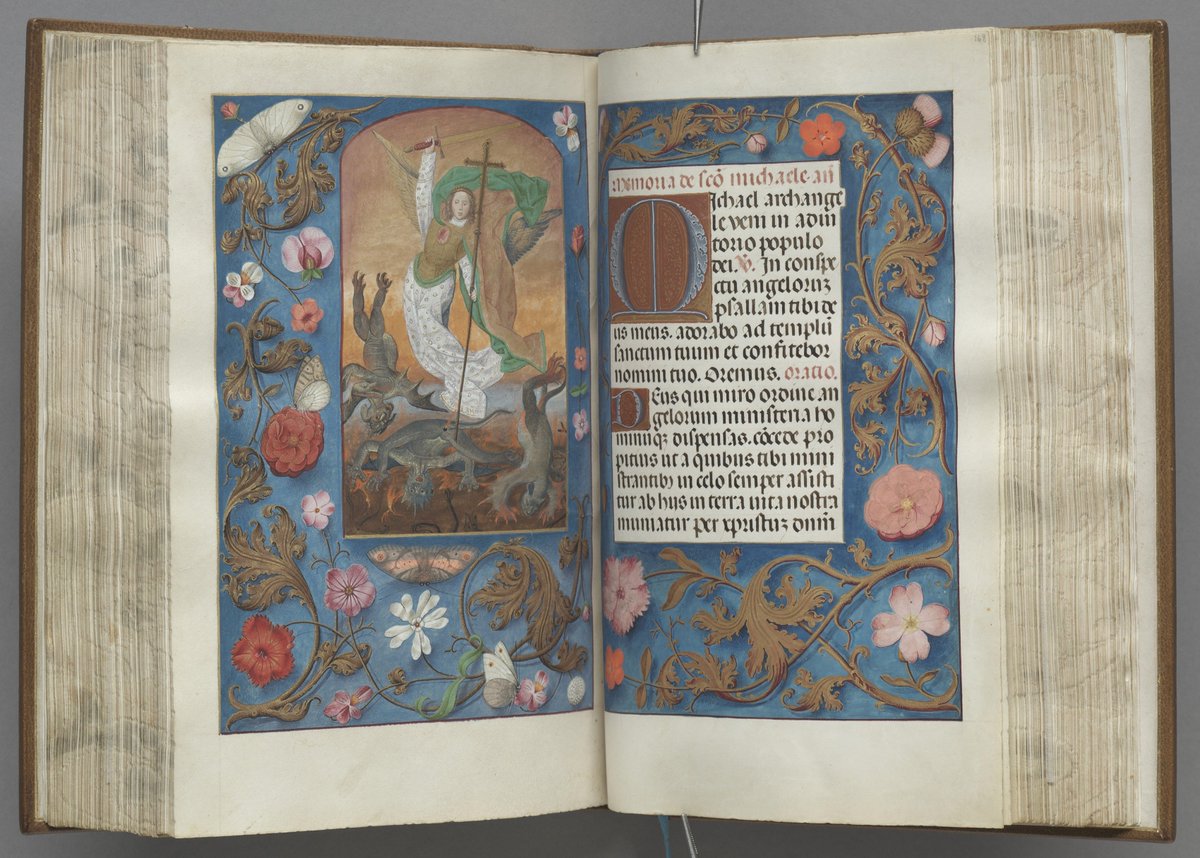 168
Memoria de scō michaele. añ
Michael archange
le veni in adiu
torio populo
dei. V. In conspe
ctu angeloruz
psallam tibi de
us meus. adorabo ad templū
sanctum tuum et confitebor
nomini tuo. Oremus. oratio.
Deus qui miro ordine an
gelorum ministeria ho
minūqz dispensas. cōcede pro
pitius ut a quibus tibi mini
strantibz in celo semper assisti
tur ab hiis in terra vita nostra
muniatur per xpristuz dnm̄